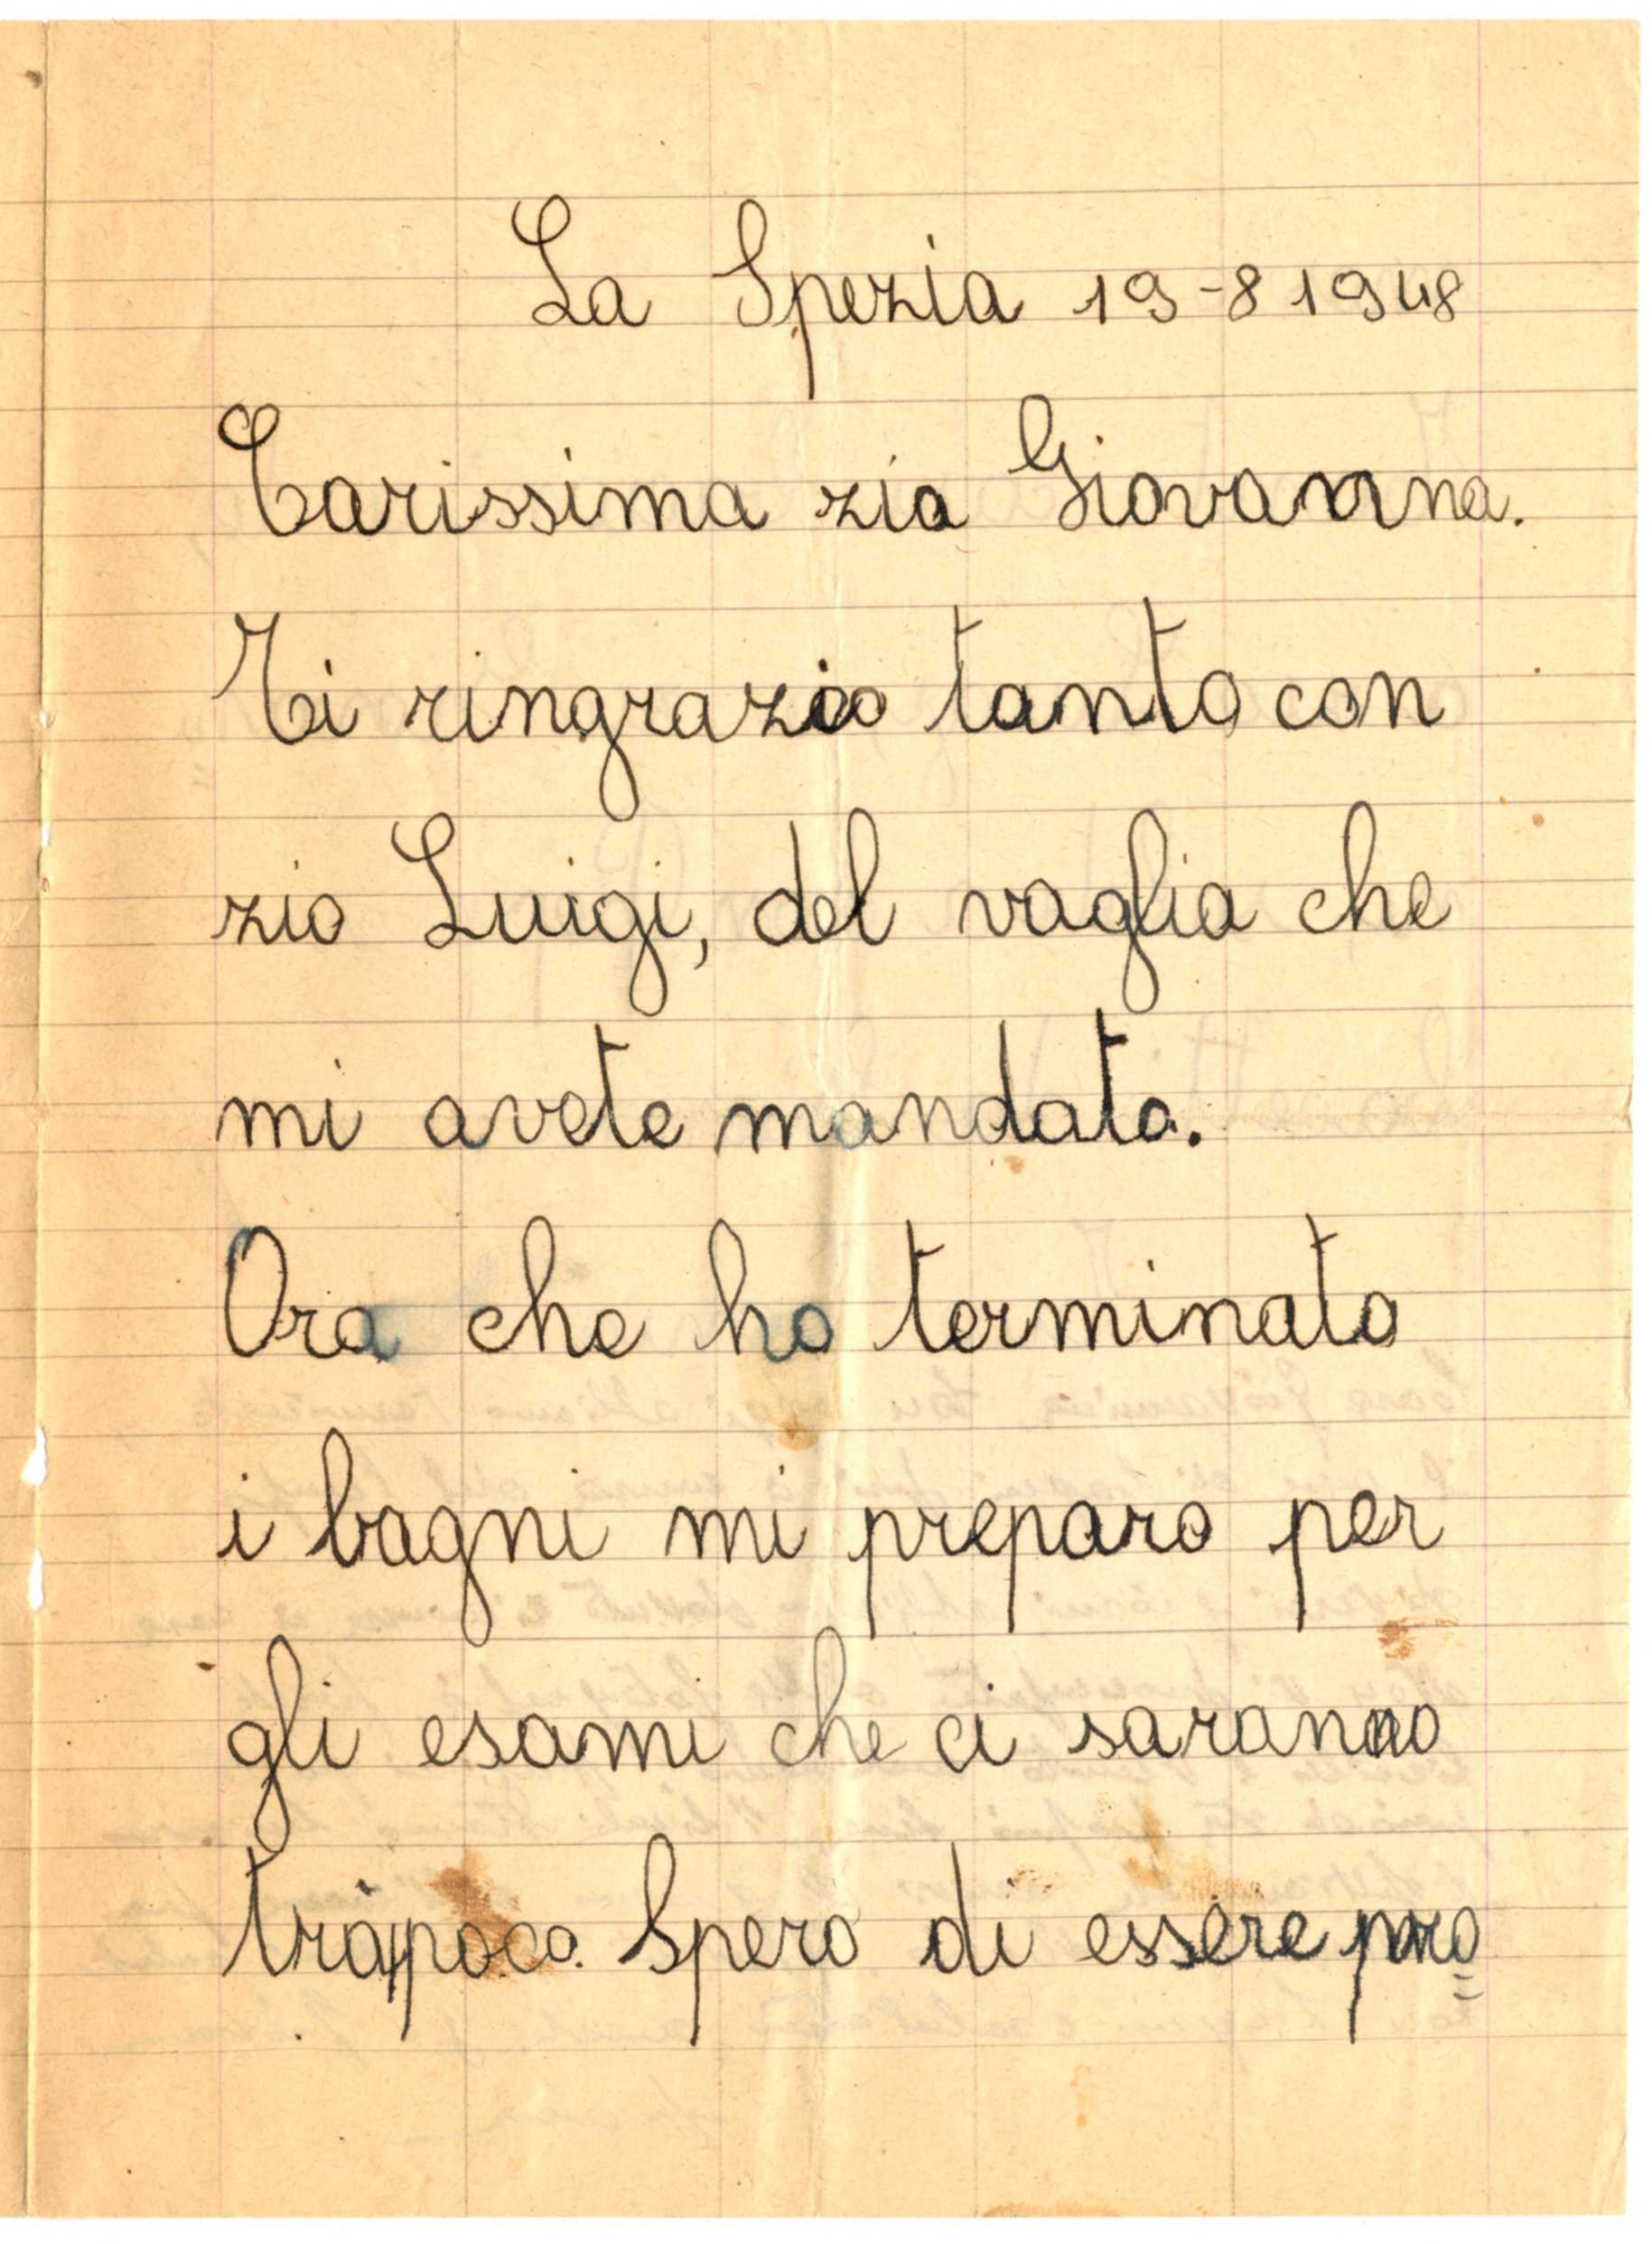 La Spezia 19-8 1948
Carissima zia Giovanna.
Ti ringrazio tanto con
zio Luigi, del vaglia che
mi avete mandato.
Ora che ho terminato
i bagni mi preparo per
gli esami che ci saranno
tra poco. Spero di essere pro=